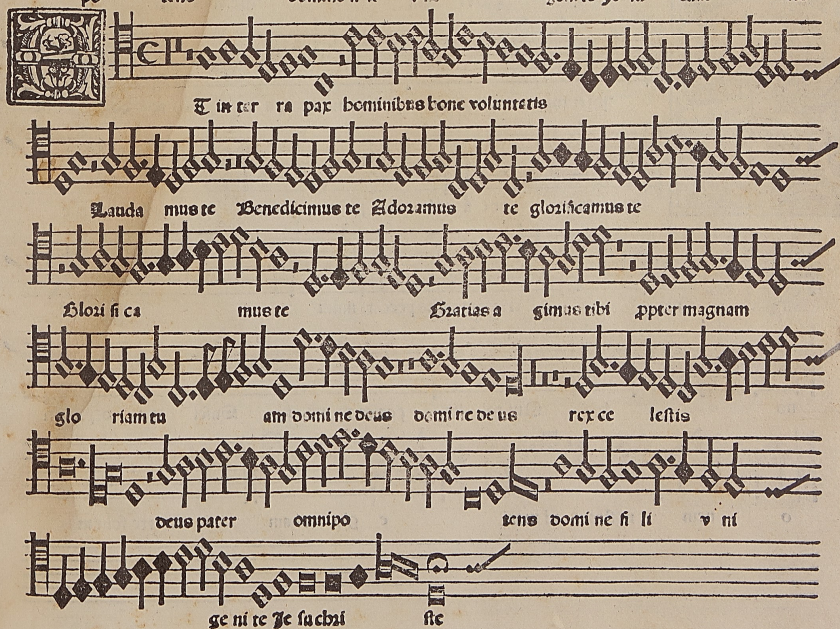 T in ter ra pax hominibus bone voluntatis
Lauda mus te Benedicimus te Adoramus te glorificamus te
Glori fi ca mus te Gratias a gimus tibi ppter magnam
glo riam tu am domi ne deus domi ne de us rex ce lestis
deus pater omnipo tens domi ne fi li v ni
ge ni te Je su chri ste